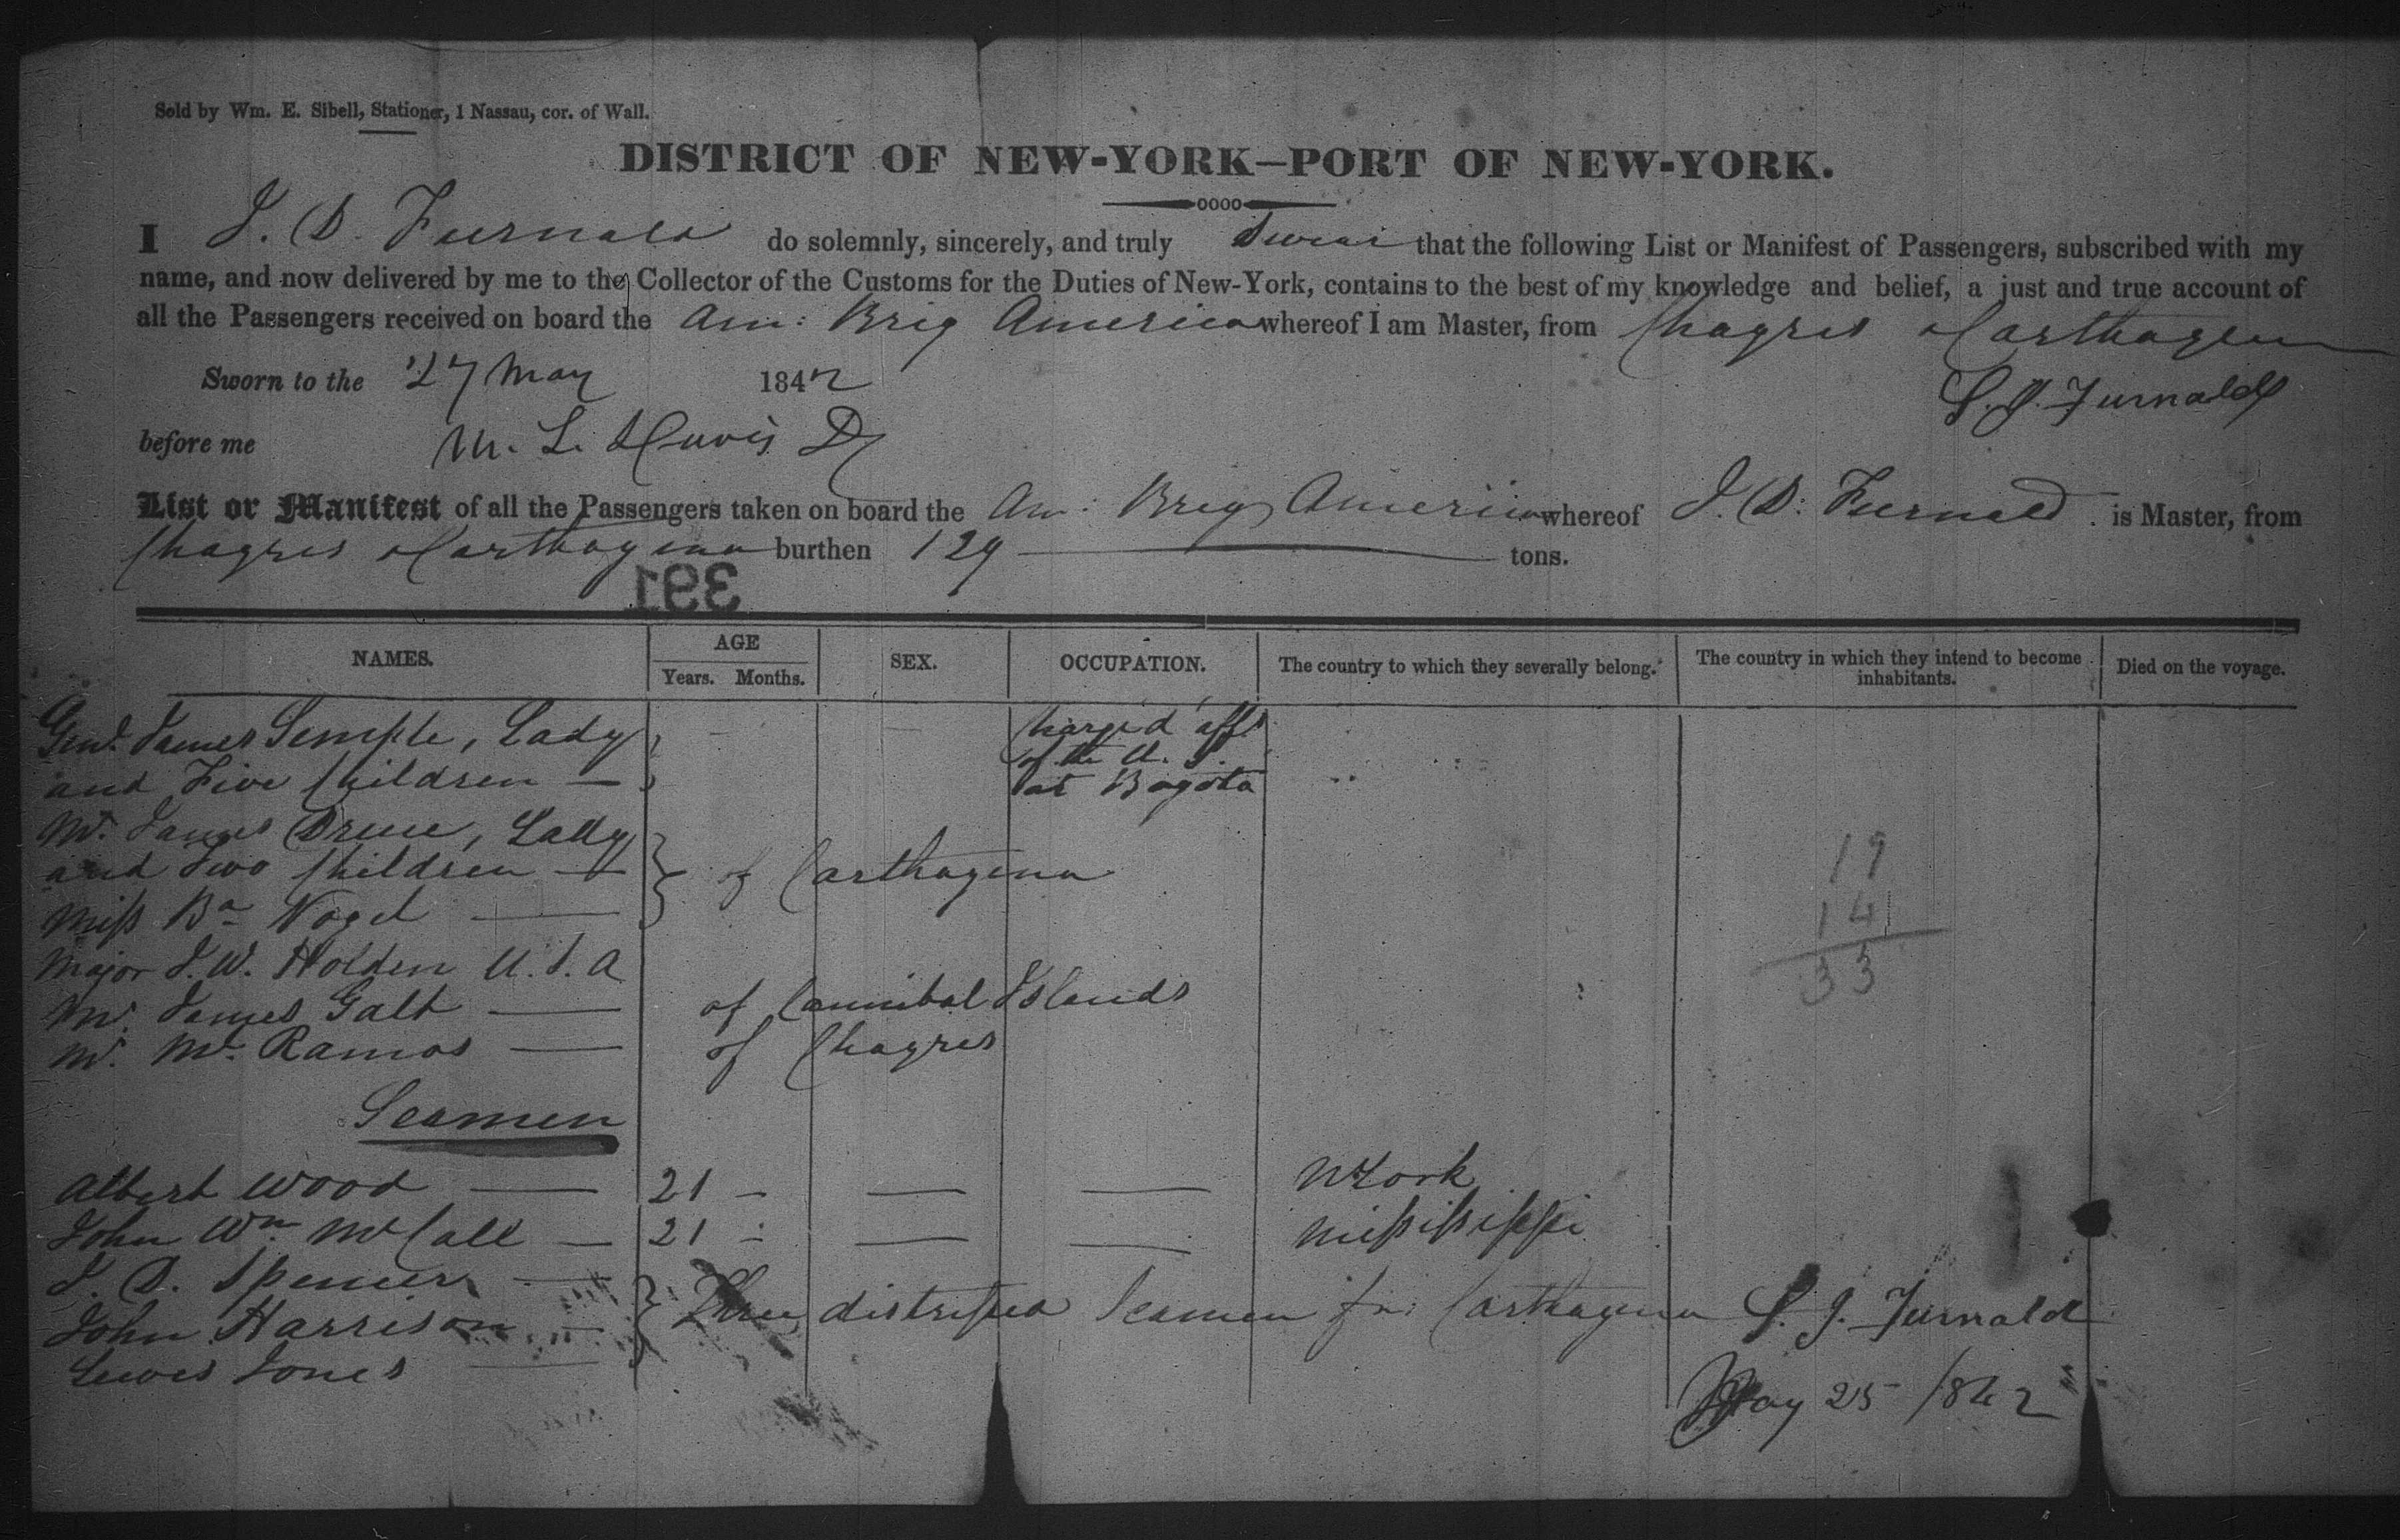 Sold by Wm. E. Sibell, Stationer, 1 Nassau, cor. of Wall.
DISTRICT OF NEW-YORK—PORT OF NEW-YORK.
I J. D. Furnald do solemnly, sincerely, and truly Swear that the following List or Manifest of Passengers, subscribed with my
name, and now delivered by me to the Collector of the Customs for the Duties of New-York, contains to the best of my knowledge and belief, a just and true account of
all the Passengers received on board the Am: Brig America whereof I am Master, from Chagres & Carthagena
Sworn to the 27 May 1842
S. J. Furnald
before me M. L. Davis Dy
List or Manifest of all the Passengers taken on board the Am: Brig America whereof J. D. Furnald is Master, from
Chagres & Carthagena burthen 129 tons.
391
NAMES. AGE Years. Months. SEX. OCCUPATION. The country to which they severally belong. The country in which they intend to become inhabitants. Died on the voyage.
Genl. James Semple, Lady
and Five Children —
Charge d' affs
of the U. S.
at Bogota
Mr. James Brue, Lady
and Two Children —
Miss Ba Vogel —
of Carthagena
19
14
33
Major J. W. Holden U. S. A
Mr. James Galt — of Cannibal Islands
Mr. Ml. Ramos — of Chagres
Seamen
Albert Wood — 21 - — — NYork
John Wm McCall — 21 - — — Mississippi
J. D. Spencer —
John Harrison —
Lewes Jones —
Three distressed Seamen fm: Carthagena
S. J. Furnald
May 25 1842